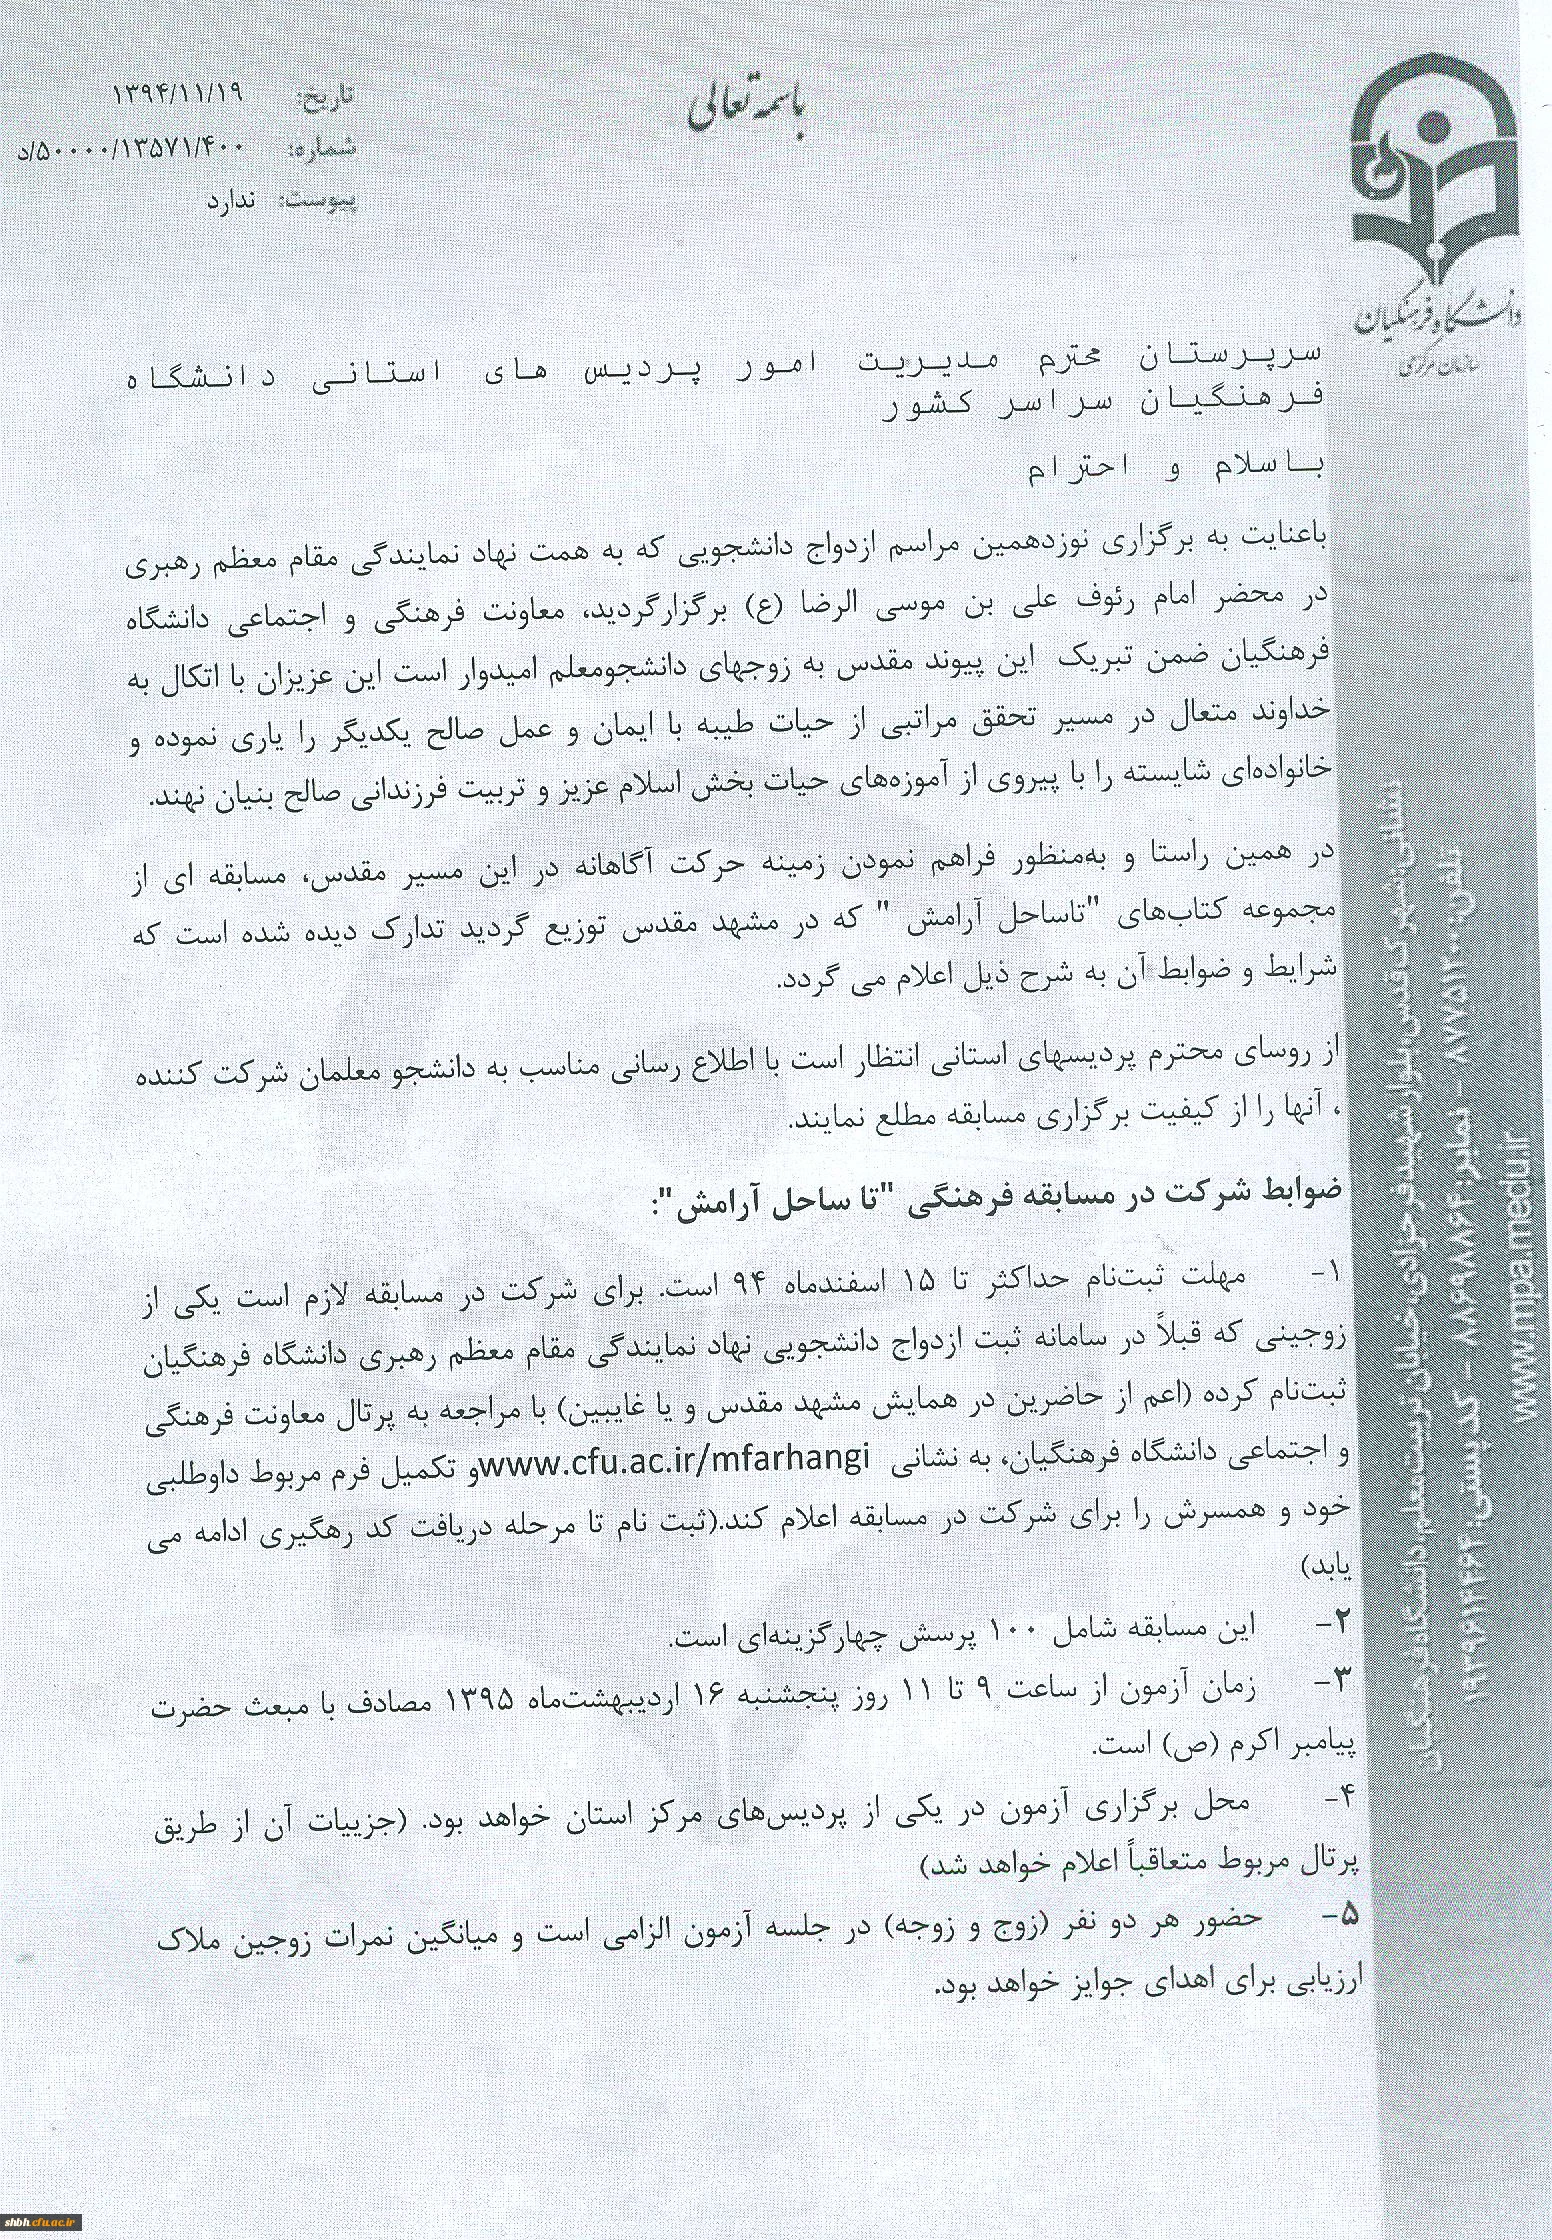 باسمه تعالی
تاریخ: ۱۳۹۴/۱۱/۱۹
شماره: ۵۰۰۰۰/۱۳۵۷۱/۴۰۰/د
پیوست: ندارد
دانشگاه فرهنگیان
سازمان مرکزی
سرپرستان محترم مدیریت امور پردیس های استانی دانشگاه
فرهنگیان سراسر کشور
باسلام و احترام
باعنایت به برگزاری نوزدهمین مراسم ازدواج دانشجویی که به همت نهاد نمایندگی مقام معظم رهبری
در محضر امام رئوف علی بن موسی الرضا (ع) برگزارگردید، معاونت فرهنگی و اجتماعی دانشگاه
فرهنگیان ضمن تبریک این پیوند مقدس به زوجهای دانشجومعلم امیدوار است این عزیزان با اتکال به
خداوند متعال در مسیر تحقق مراتبی از حیات طیبه با ایمان و عمل صالح یکدیگر را یاری نموده و
خانواده‌ای شایسته را با پیروی از آموزه‌های حیات بخش اسلام عزیز و تربیت فرزندانی صالح بنیان نهند.
در همین راستا و به‌منظور فراهم نمودن زمینه حرکت آگاهانه در این مسیر مقدس، مسابقه ای از
مجموعه کتاب‌های "تاساحل آرامش " که در مشهد مقدس توزیع گردید تدارک دیده شده است که
شرایط و ضوابط آن به شرح ذیل اعلام می گردد.
از روسای محترم پردیسهای استانی انتظار است با اطلاع رسانی مناسب به دانشجو معلمان شرکت کننده
، آنها را از کیفیت برگزاری مسابقه مطلع نمایند.
ضوابط شرکت در مسابقه فرهنگی "تا ساحل آرامش":
۱- مهلت ثبت‌نام حداکثر تا ۱۵ اسفندماه ۹۴ است. برای شرکت در مسابقه لازم است یکی از
زوجینی که قبلاً در سامانه ثبت ازدواج دانشجویی نهاد نمایندگی مقام معظم رهبری دانشگاه فرهنگیان
ثبت‌نام کرده (اعم از حاضرین در همایش مشهد مقدس و یا غایبین) با مراجعه به پرتال معاونت فرهنگی
و اجتماعی دانشگاه فرهنگیان، به نشانی www.cfu.ac.ir/mfarhangi و تکمیل فرم مربوط داوطلبی
خود و همسرش را برای شرکت در مسابقه اعلام کند.(ثبت نام تا مرحله دریافت کد رهگیری ادامه می
یابد)
۲- این مسابقه شامل ۱۰۰ پرسش چهارگزینه‌ای است.
۳- زمان آزمون از ساعت ۹ تا ۱۱ روز پنجشنبه ۱۶ اردیبهشت‌ماه ۱۳۹۵ مصادف با مبعث حضرت
پیامبر اکرم (ص) است.
۴- محل برگزاری آزمون در یکی از پردیس‌های مرکز استان خواهد بود. (جزییات آن از طریق
پرتال مربوط متعاقباً اعلام خواهد شد)
۵- حضور هر دو نفر (زوج و زوجه) در جلسه آزمون الزامی است و میانگین نمرات زوجین ملاک
ارزیابی برای اهدای جوایز خواهد بود.
www.mpa.medu.ir
shbh.cfu.ac.ir